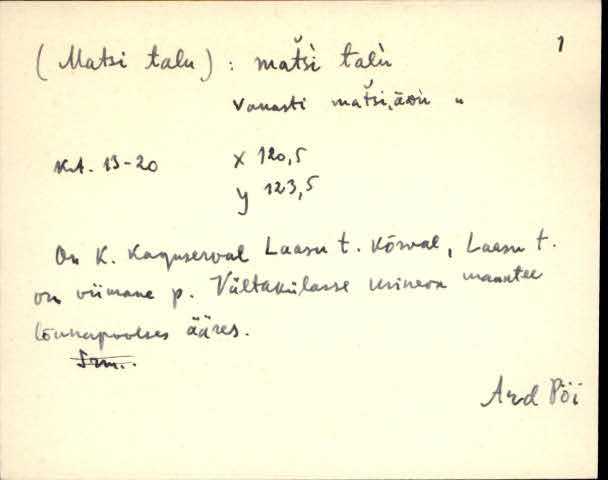 1
(Matsi talu) : mat̆s̀i talù
vanasti mat̆si,ä͔ǝ̑ù "
K.A. 13-20 x 120,5
y 123,5
On K. Kaguserval Laasu t. kõrval, Laasu t.
on viimane p. Vältakülasse mineva maantee
lõunapoolses ääres.
Srm.
Ard Pöi